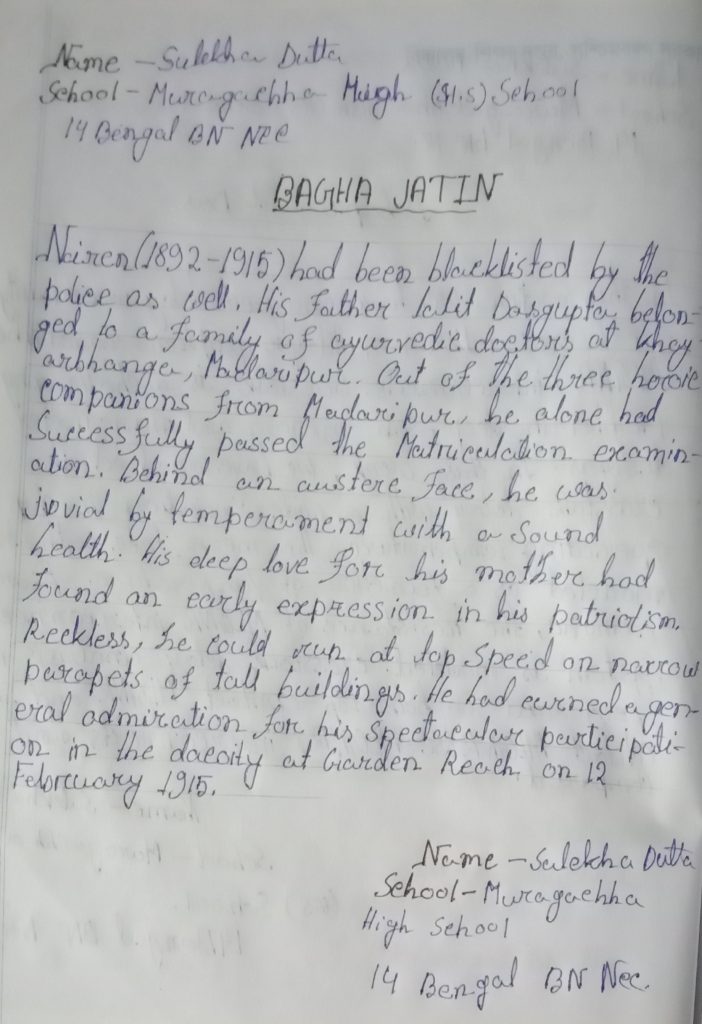 Name - Sulekha Dutta
School - Muragachha High (H.S) School
14 Bengal BN NCC
BAGHA JATIN
Neiren (1892-1915) had been blacklisted by the
police as well. His father lalit Dasgupta, belon-
ged to a family of ayurvedic doctors at khoy
arbhanga, Madaripur. Out of the three heroic
companions from Madaripur, he alone had
Successfully passed the Matriculation examin-
ation. Behind an austere face, he was
jovial by temperament with a Sound
health. His deep love for his mother had
found an early expression in his patriotism.
Reckless, he could run at top Speed on narrow
parapets of tall buildings. He had earned a gen-
eral admiration for his Spectacular participati-
on in the dacoity at Garden Reach on 12
February 1915.
Name - Sulekha Dutta
School - Muragachha
High School
14 Bengal BN Ncc.